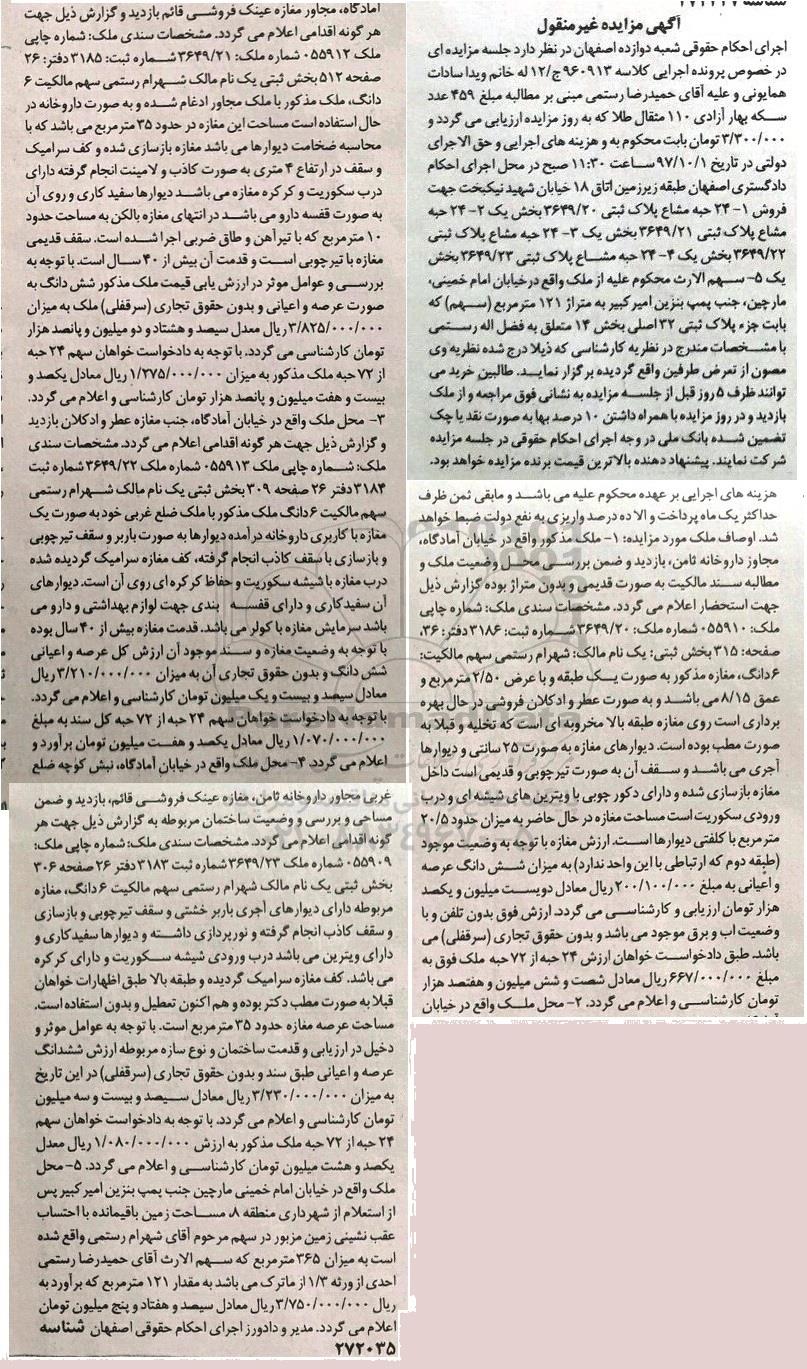 آگهی مزایده غیرمنقول
اجرای احکام حقوقی شعبه دوازده اصفهان در نظر دارد جلسه مزایده ای
در خصوص پرونده اجرایی کلاسه ۹۶۰۹۱۳ ج/۱۲ له خانم ویدا سادات
همایونی و علیه آقای حمیدرضا رستمی مبنی بر مطالبه مبلغ ۴۵۹ عدد
سکه بهار آزادی ۱۱۰ مثقال طلا که به روز مزایده ارزیابی می گردد و
۳/۳۰۰/۰۰۰ تومان بابت محکوم به و هزینه های اجرایی و حق الاجرای
دولتی در تاریخ ۹۷/۱۰/۱ ساعت ۱۱:۳۰ صبح در محل اجرای احکام
دادگستری اصفهان طبقه زیرزمین اتاق ۱۸ خیابان شهید نیکبخت جهت
فروش ۱- ۲۴ حبه مشاع پلاک ثبتی ۳۶۴۹/۲۰ بخش یک ۲- ۲۴ حبه
مشاع پلاک ثبتی ۳۶۴۹/۲۱ بخش یک ۳- ۲۴ حبه مشاع پلاک ثبتی
۳۶۴۹/۲۲ بخش یک ۴- ۲۴ حبه مشاع پلاک ثبتی ۳۶۴۹/۲۳ بخش
یک ۵- سهم الارث محکوم علیه از ملک واقع در خیابان امام خمینی،
مارچین، جنب پمپ بنزین امیر کبیر به متراژ ۱۲۱ مترمربع (سهم) که
بابت جزء پلاک ثبتی ۳۲ اصلی بخش ۱۴ متعلق به فضل اله رستمی
با مشخصات مندرج در نظریه کارشناسی که ذیلا درج شده نظریه وی
مصون از تعرض طرفین واقع گردیده برگزار نماید. طالبین خرید می
توانند ظرف ۵ روز قبل از جلسه مزایده به نشانی فوق مراجعه و از ملک
بازدید و در روز مزایده با همراه داشتن ۱۰ درصد بها به صورت نقد یا چک
تضمین شده بانک ملی در وجه اجرای احکام حقوقی در جلسه مزایده
شرکت نمایند. پیشنهاد دهنده بالاترین قیمت برنده مزایده خواهد بود.
هزینه های اجرایی بر عهده محکوم علیه می باشد و مابقی ثمن ظرف
حداکثر یک ماه پرداخت و الا ده درصد واریزی به نفع دولت ضبط خواهد
شد. اوصاف ملک مورد مزایده: ۱- ملک مذکور واقع در خیابان آمادگاه،
مجاوز داروخانه ثامن، بازدید و ضمن بررسی محل وضعیت ملک و
مطالبه سند مالکیت به صورت قدیمی و بدون متراژ بوده گزارش ذیل
جهت استحضار اعلام می گردد. مشخصات سندی ملک: شماره چاپی
ملک: ۰۵۵۹۱۰ شماره ملک: ۳۶۴۹/۲۰ شماره ثبت: ۳۱۸۶ دفتر: ۳۶،
صفحه: ۳۱۵ بخش ثبتی: یک نام مالک: شهرام رستمی سهم مالکیت:
۶دانگ، مغازه مذکور به صورت یک طبقه و با عرض ۲/۵۰ مترمربع و
عمق ۸/۱۵ می باشد و به صورت عطر و ادکلان فروشی در حال بهره
برداری است روی مغازه طبقه بالا مخروبه ای است که تخلیه و قبلا به
صورت مطب بوده است. دیوارهای مغازه به صورت ۲۵ سانتی و دیوارها
آجری می باشد و سقف آن به صورت تیرچوبی و قدیمی است داخل
مغازه بازسازی شده و دارای دکور چوبی با ویترین های شیشه ای و درب
ورودی سکوریت است مساحت مغازه در حال حاضر به میزان حدود ۲۰/۵
مترمربع با کلفتی دیوارها است. ارزش مغازه با توجه به وضعیت موجود
(طبقه دوم که ارتباطی با این واحد ندارد) به میزان شش دانگ عرصه
و اعیانی به مبلغ ۲۰۰/۱۰۰/۰۰۰ ریال معادل دویست میلیون و یکصد
هزار تومان ارزیابی و کارشناسی می گردد. ارزش فوق بدون تلفن و با
وضعیت اب و برق موجود می باشد و بدون حقوق تجاری (سرقفلی) می
باشد. طبق دادخواست خواهان ارزش ۲۴ حبه از ۷۲ حبه ملک فوق به
مبلغ ۶۶۷/۰۰۰/۰۰۰ ریال معادل شصت و شش میلیون و هفتصد هزار
تومان کارشناسی و اعلام می گردد. ۲- محل ملک واقع در خیابان
آمادگاه، مجاور مغازه عینک فروشی قائم بازدید و گزارش ذیل جهت
هر گونه اقدامی اعلام می گردد. مشخصات سندی ملک: شماره چاپی
ملک ۰۵۵۹۱۲ شماره ملک: ۳۶۴۹/۲۱ شماره ثبت: ۳۱۸۵ دفتر: ۲۶
صفحه ۵۱۲ بخش ثبتی یک نام مالک شهرام رستمی سهم مالکیت ۶
دانگ، ملک مذکور با ملک مجاور ادغام شده و به صورت داروخانه در
حال استفاده است مساحت این مغازه در حدود ۳۵ مترمربع می باشد که با
محاسبه ضخامت دیوارها می باشد مغازه بازسازی شده و کف سرامیک
و سقف در ارتفاع ۴ متری به صورت کاذب و لامینت انجام گرفته دارای
درب سکوریت و کرکره مغازه می باشد دیوارها سفید کاری و روی آن
به صورت قفسه دارو می باشد در انتهای مغازه بالکن به مساحت حدود
۱۰ مترمربع که با تیرآهن و طاق ضربی اجرا شده است. سقف قدیمی
مغازه با تیرچوبی است و قدمت آن بیش از ۴۰ سال است. با توجه به
بررسی و عوامل موثر در ارزش یابی قیمت ملک مذکور شش دانگ به
صورت عرصه و اعیانی و بدون حقوق تجاری (سرقفلی) ملک به میزان
۳/۸۲۵/۰۰۰/۰۰۰ ریال معدل سیصد و هشتاد و دو میلیون و پانصد هزار
تومان کارشناسی می گردد. با توجه به دادخواست خواهان سهم ۲۴ حبه
از ۷۲ حبه ملک مذکور به میزان ۱/۲۷۵/۰۰۰/۰۰۰ ریال معادل یکصد و
بیست و هفت میلیون و پانصد هزار تومان کارشناسی و اعلام می گردد.
۳- محل ملک واقع در خیابان آمادگاه، جنب مغازه عطر و ادکلان بازدید
و گزارش ذیل جهت هر گونه اقدامی اعلام می گردد. مشخصات سندی
ملک: شماره چاپی ملک ۰۵۵۹۱۳ شماره ملک ۳۶۴۹/۲۲ شماره ثبت
۳۱۸۴ دفتر ۲۶ صفحه ۳۰۹ بخش ثبتی یک نام مالک شهرام رستمی
سهم مالکیت ۶ دانگ ملک مذکور با ملک ضلع غربی خود به صورت یک
مغازه با کاربری داروخانه درآمده دیوارها به صورت باربر و سقف تیرچوبی
و بازسازی با سقف کاذب انجام گرفته، کف مغازه سرامیک گردیده شده
درب مغازه با شیشه سکوریت و حفاظ کرکره ای روی آن است. دیوارهای
آن سفید کاری و دارای قفسه بندی جهت لوازم بهداشتی و دارو می
باشد سرمایش مغازه با کولر می باشد. قدمت مغازه بیش از ۴۰ سال بوده
با توجه به وضعیت مغازه و سند موجود آن ارزش کل عرصه و اعیانی
شش دانگ و بدون حقوق تجاری آن به میزان ۳/۲۱۰/۰۰۰/۰۰۰ ریال
معادل سیصد و بیست و یک میلیون تومان کارشناسی و اعلام می گردد.
با توجه به دادخواست خواهان سهم ۲۴ حبه از ۷۲ حبه کل سند به مبلغ
۱/۰۷۰/۰۰۰/۰۰۰ ریال معادل یکصد و هفت میلیون تومان برآورد و
اعلام می گردد. ۴- محل ملک واقع در خیابان آمادگاه، نبش کوچه ضلع
غربی مجاور داروخانه ثامن، مغازه عینک فروشی قائم، بازدید و ضمن
مساحی و بررسی و وضعیت ساختمان مربوطه به گزارش ذیل جهت هر
گونه اقدامی اعلام می گردد. مشخصات سندی ملک: شماره چاپی ملک:
۰۵۵۹۰۹ شماره ملک ۳۶۴۹/۲۳ شماره ثبت ۳۱۸۳ دفتر ۲۶ صفحه ۳۰۶
بخش ثبتی یک نام مالک شهرام رستمی سهم مالکیت ۶ دانگ، مغازه
مربوطه دارای دیوارهای آجری باربر خشتی و سقف تیرچوبی و بازسازی
و سقف کاذب انجام گرفته و نورپردازی داشته و دیوارها سفید کاری و
دارای ویترین می باشد درب ورودی شیشه سکوریت و دارای کرکره
می باشد. کف مغازه سرامیک گردیده و طبقه بالا طبق اظهارات خواهان
قبلا به صورت مطب دکتر بوده و هم اکنون تعطیل و بدون استفاده است.
مساحت عرصه مغازه حدود ۳۵ مترمربع است. با توجه به عوامل موثر و
دخیل در ارزیابی و قدمت ساختمان و نوع سازه مربوطه ارزش ششدانگ
عرصه و اعیانی طبق سند و بدون حقوق تجاری (سرقفلی) در این تاریخ
به میزان ۳/۲۳۰/۰۰۰/۰۰۰ ریال معادل سیصد و بیست و سه میلیون
تومان کارشناسی و اعلام می گردد. با توجه به دادخواست خواهان سهم
۲۴ حبه از ۷۲ حبه ملک مذکور به ارزش ۱/۰۸۰/۰۰۰/۰۰۰ ریال معدل
یکصد و هشت میلیون تومان کارشناسی و اعلام می گردد. ۵- محل
ملک واقع در خیابان امام خمینی مارچین جنب پمپ بنزین امیر کبیر پس
از استعلام از شهرداری منطقه ۸، مساحت زمین باقیمانده با احتساب
عقب نشینی زمین مزبور در سهم مرحوم آقای شهرام رستمی واقع شده
است به میزان ۳۶۵ مترمربع که سهم الارث آقای حمیدرضا رستمی
احدی از ورثه ۱/۳ از ماترک می باشد به مقدار ۱۲۱ مترمربع که برآورد به
ریال ۳/۷۵۰/۰۰۰/۰۰۰ ریال معادل سیصد و هفتاد و پنج میلیون تومان
اعلام می گردد. مدیر و دادورز اجرای احکام حقوقی اصفهان شناسه
۲۷۲۰۳۵